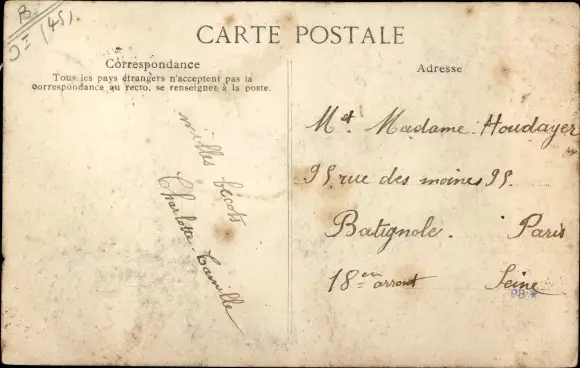 B
OI (45).
CARTE POSTALE
Correspondance
Tous les pays étrangers n'acceptent pas la
correspondance au recto, se renseigner à la poste.
milles bécots
Charlotte Camille
Adresse
Met Madame Houdayer
95 rue des moines 95.
Batignole. Paris
18=en arront Seine
PB